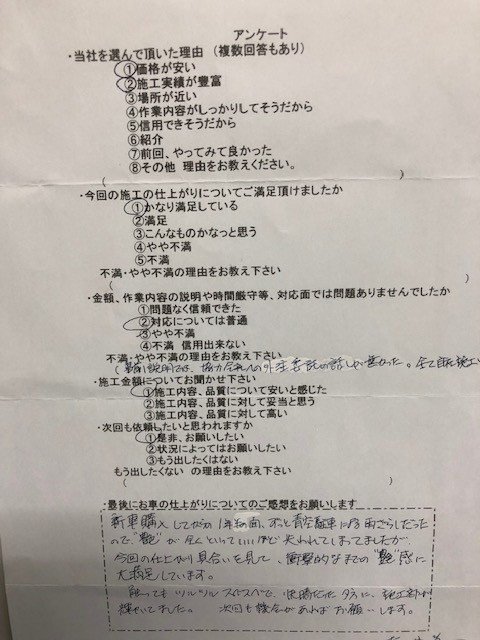 アンケート
・当社を選んで頂いた理由 (複数回答もあり)
①価格が安い
②施工実績が豊富
③場所が近い
④作業内容がしっかりしてそうだから
⑤信用できそうだから
⑥紹介
⑦前回、やってみて良かった
⑧その他 理由をお教えください。
( )
・今回の施工の仕上がりについてご満足頂けましたか
①かなり満足している
②満足
③こんなものかなっと思う
④やや不満
⑤不満
不満・やや不満の理由をお教え下さい
( )
・金額、作業内容の説明や時間厳守等、対応面では問題ありませんでしたか
①問題なく信頼できた
②対応については普通
③やや不満
④不満 信用出来ない
不満・やや不満の理由をお教え下さい
( 説明では、協力会社への外注委託の話しが無かった。全て自社施工
・施工金額についてお聞かせ下さい
①施工内容、品質について安いと感じた
②施工内容、品質に対して妥当と思う
③施工内容、品質に対して高い
・次回も依頼したいと思われますか
①是非、お願いしたい
②状況によってはお願いしたい
③もう出したくはない
もう出したくない の理由をお教え下さい
( )
・最後にお車の仕上がりについてのご感想をお願いします
新車購入してから 1年の間、ずっと青空駐車による雨ざらしだった
ので"艶"が全くといっていいほど失われてしまってましたが
今回の仕上がり具合いを見て、衝撃的なまでの"艶"感に
大満足しています。
触っても ツルツル スベスベで、夕方に、施工車が
輝いてました。 次回も機会があればお願いします。